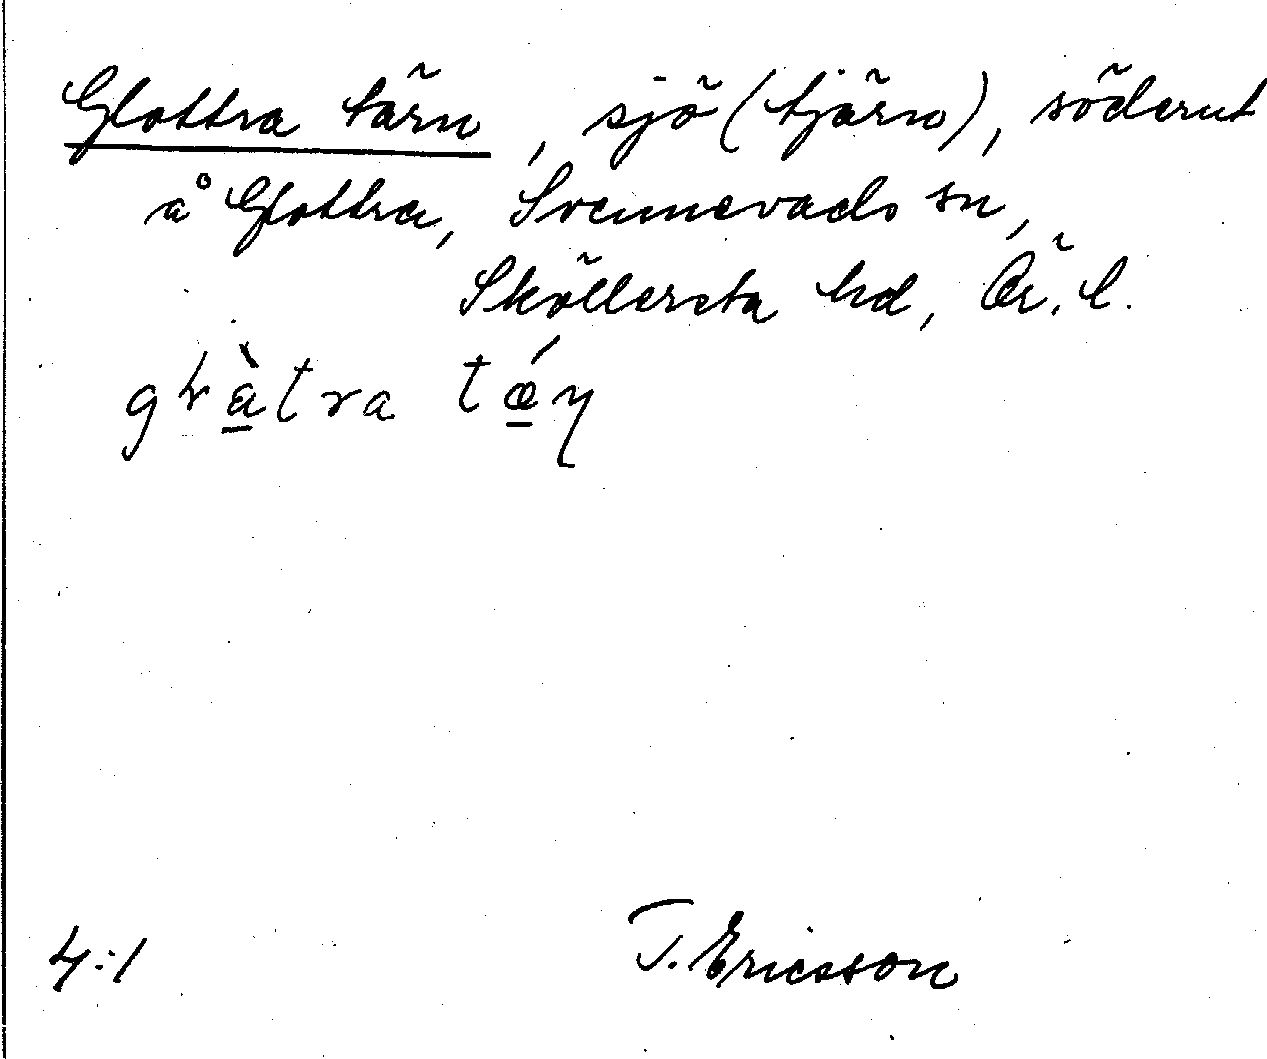 Glottra tärn, sjö (tjärn), söderut
å Glottra, Svennevads sn,
Sköllersta hd, Ör. l.
tra
4:1
T. Ericsson